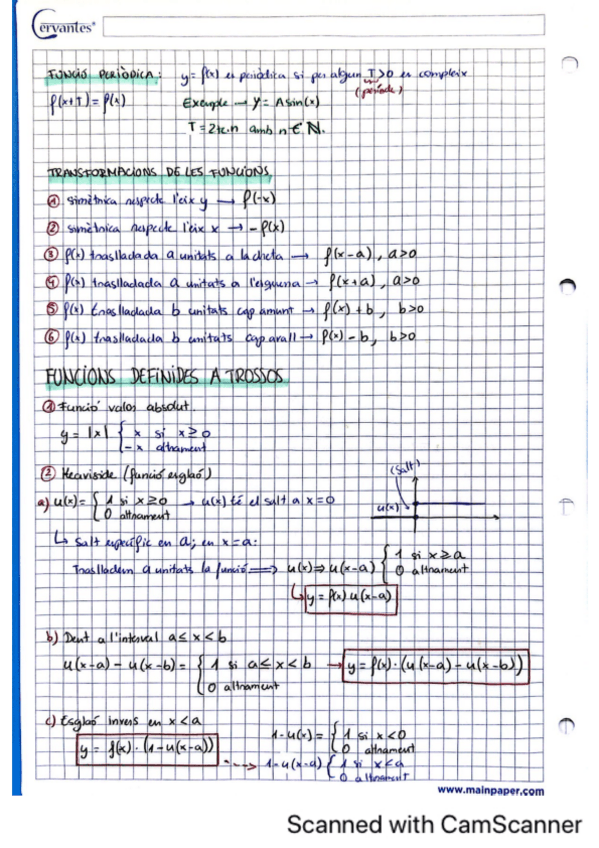 Cervantes®
FUNCIÓ PERIÒDICA: y = f(x) es periòdica si per algun T>0 es compleix
(període)
f(x+T) = f(x) Exemple → y = A sin(x)
T = 2π.n amb n ∈ N.
TRANSFORMACIONS DE LES FUNCIONS
① simètrica respecte l'eix y → f(-x)
② simètrica respecte l'eix x → -f(x)
③ f(x) traslladada a unitats a la dreta → f(x-a), a>0
④ f(x) traslladada a unitats a l'esquerra → f(x+a), a>0
⑤ f(x) traslladada b unitats cap amunt → f(x)+b, b>0
⑥ f(x) traslladada b unitats cap avall → f(x)-b, b>0
FUNCIONS DEFINIDES A TROSSOS
① Funció valor absolut.
y = |x| { x si x ≥ 0
-x altrament
② Heaviside (funció esglaó)
(salt)
a) u(x) = { 1 si x ≥ 0 → u(x) té el salt a x = 0
0 altrament
u(x)
↳ Salt específic en a; en x = a:
Traslladem a unitats la funció ⟹ u(x) ⇒ u(x-a) { 1 si x ≥ a
0 altrament
↳ y = f(x) u(x-a)
b) Dent a l'interval a ≤ x < b
u(x-a) - u(x-b) = { 1 si a ≤ x < b → y = f(x)·(u(x-a) - u(x-b))
0 altrament
c) Esglaó invers en x < a
1-u(x) = { 1 si x < 0
0 altrament
y = f(x)·(1-u(x-a))
⇢ 1-u(x-a) { 1 si x < a
0 altrament
www.mainpaper.com
Scanned with CamScanner